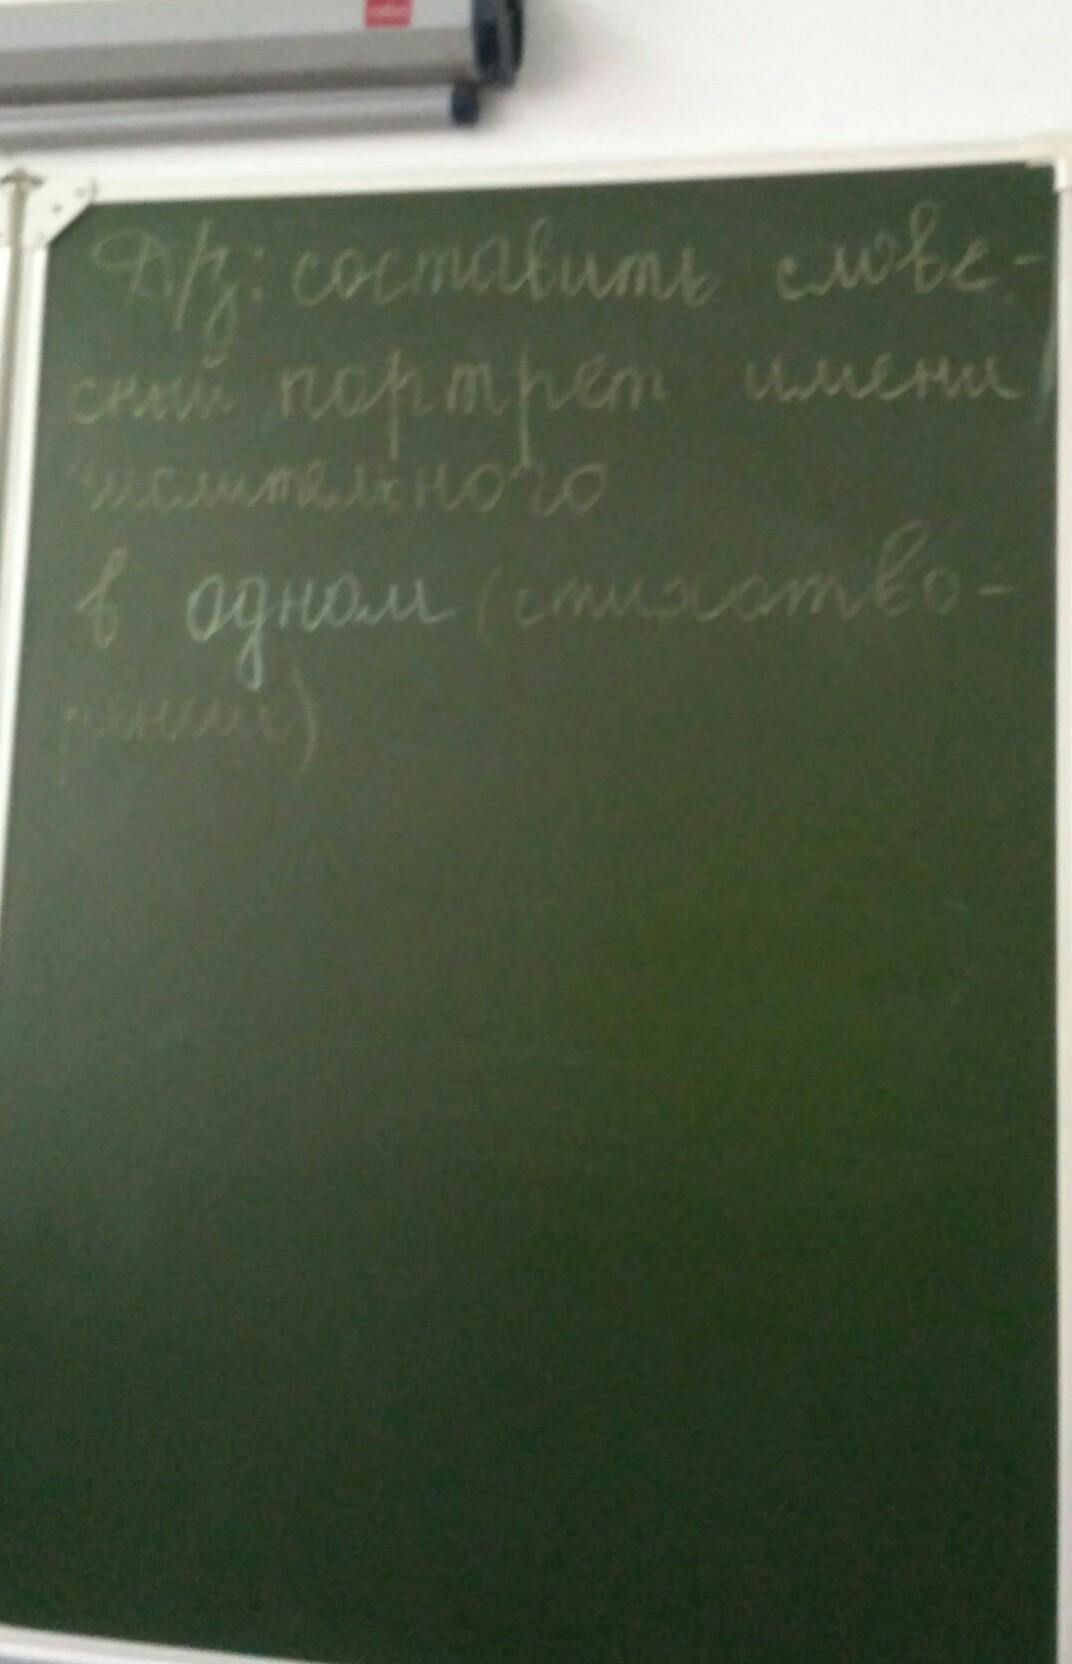 Д/з: составить слове-
сный портрет имени
числительного
в одном (стихотво-
рении)